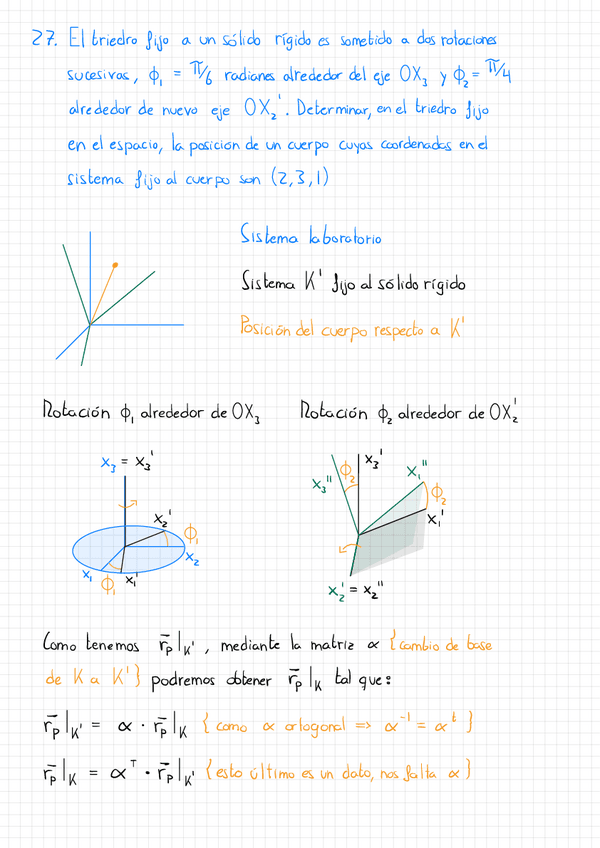 27. El triedro fijo a un sólido rígido es sometido a dos rotaciones
sucesivas, ϕ₁ = π/6 radianes alrededor del eje OX₃ y ϕ₂ = π/4
alrededor de nuevo eje OX₂'. Determinar, en el triedro fijo
en el espacio, la posición de un cuerpo cuyas coordenadas en el
sistema fijo al cuerpo son (2,3,1)
Sistema laboratorio
Sistema K' fijo al sólido rígido
Posición del cuerpo respecto a K'
Rotación ϕ₁ alrededor de OX₃
Rotación ϕ₂ alrededor de OX₂'
x₃ = x₃'
x₂'
ϕ₁
x₂
x₁
ϕ₁
x₁'
x₃'
ϕ₂
x₃''
x₁''
ϕ₂
x₁'
x₂' = x₂''
Como tenemos r̄ₚ|K', mediante la matriz α {cambio de base
de K a K'} podremos obtener r̄ₚ|K tal que:
r̄ₚ|K' = α · r̄ₚ|K {como α ortogonal => α⁻¹ = αᵗ}
r̄ₚ|K = αᵀ · r̄ₚ|K' {esto último es un dato, nos falta α}